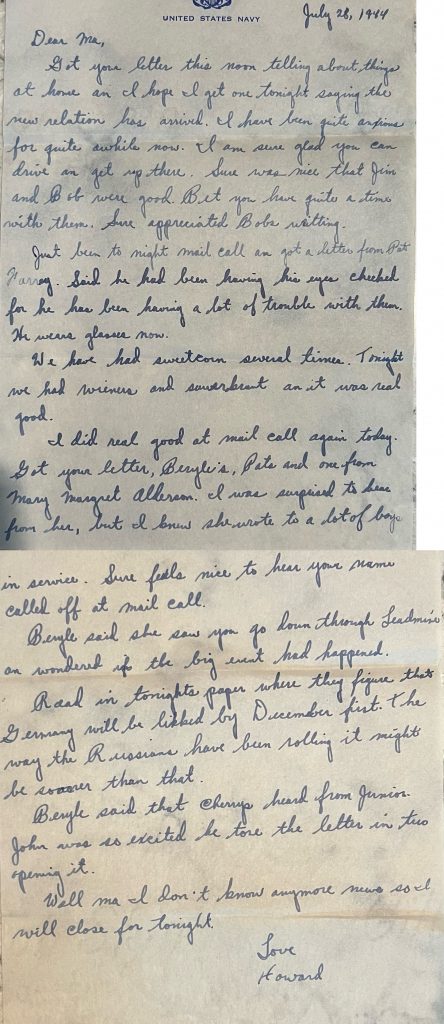 UNITED STATES NAVY
July 28, 1944
Dear Ma,
Got your letter this noon telling about things
at home an I hope I get one tonight saying the
new relation has arrived. I have been quite anxious
for quite awhile now. I am sure glad you can
drive an get up there. Sure was nice that Jim
and Bob were good. Bet you have quite a time
with them. Sure appreciated Bobs writting.
Just been to night mail call an got a letter from Pat
Said he had been having his eyes checked
for he has been having a lot of trouble with them.
He wears glasses now.
We have had sweetcorn several times. Tonight
we had wieners and sauerkraut an it was real
good.
I did real good at mail call again today.
Got your letter, Beryle's, Pats and one from
Mary Margret Allerson. I was surprised to hear
from her, but I knew she wrote to a lot of boys
in service. Sure feels nice to hear your name
called off at mail call.
Beryle said she saw you go down through Leadmine
an wondered if the big event had happened.
Read in tonights paper where they figure that
Germany will be licked by December first. The
way the Russians have been rolling it might
be sooner than that.
Beryle said that Cherrys heard from Junior.
John was so excited he tore the letter in two
opening it.
Well ma I don't know anymore news so I
will close for tonight.
Love
Howard